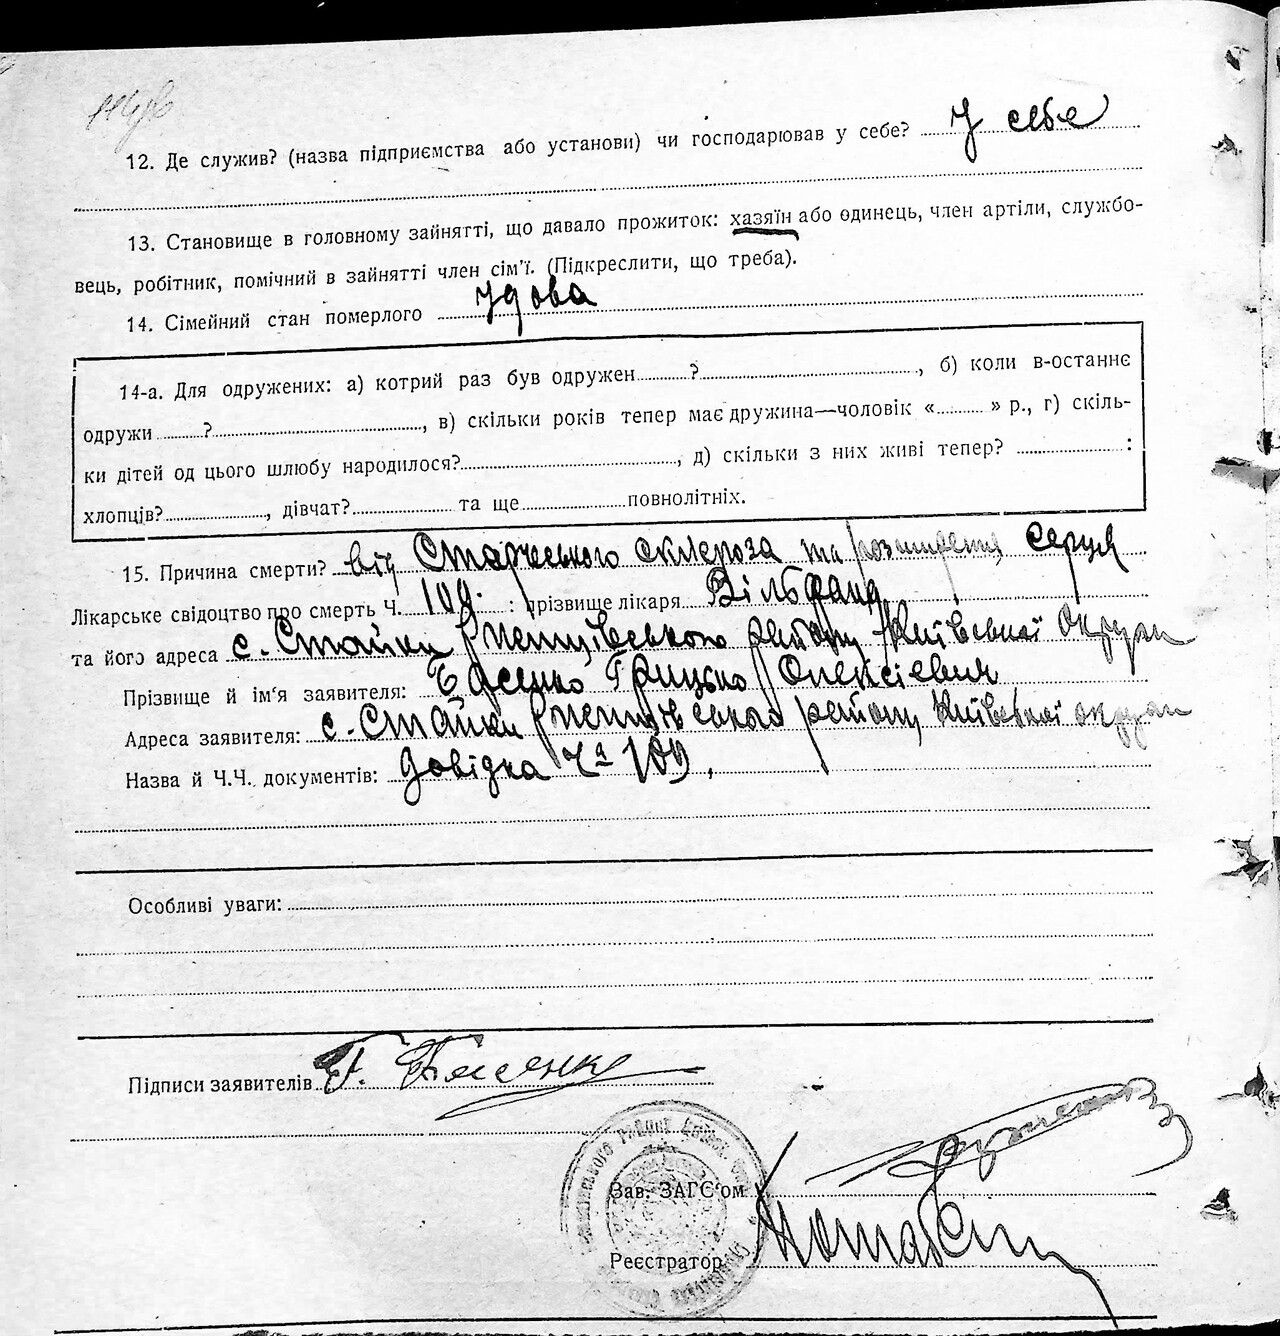 12. Де служив? (назва підприємства або установи) чи господарював у себе? У себе
13. Становище в головному зайнятті, що давало прожиток: хазяїн або одинець, член артіли, службо-
вець, робітник, помічний в зайнятті член сім'ї. (Підкреслити, що треба).
14. Сімейний стан померлого Удова
14-а. Для одружених: а) котрий раз був одружен ? , б) коли в-останнє
одружи ? , в) скільки років тепер має дружина—чоловік « » р., г) скіль-
ки дітей од цього шлюбу народилося? , д) скільки з них живі тепер? :
хлопців? , дівчат? та ще повнолітніх.
15. Причина смерти? від Старческого склероза та розширення серця
Лікарське свідоцтво про смерть Ч. 109. : прізвище лікаря Вільфанд
та його адреса с. Стайки району Київської Округи
Прізвище й ім'я заявителя: Грицько Олексієвич
Адреса заявителя: с. Стайки району Київської округи
Назва й Ч.Ч. документів: Довідка Ч 109,
Особливі уваги:
Підписи заявителів Г.
Зав. ЗАГС'ом
Реєстратор